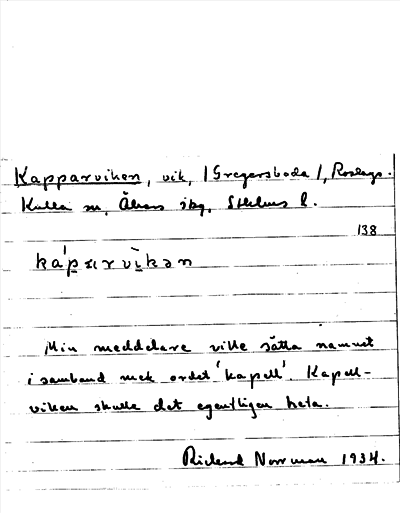 Kapparviken, vik, /Gregersboda/, Roslags-
Kulla sn, Åkers skg, Sthlms l.
138
kápₐrvìkən
Min meddelare ville sätta namnet
i samband med ordet 'kapell'. Kapell-
viken skulle det egentligen heta.
Richard Norrman 1934.